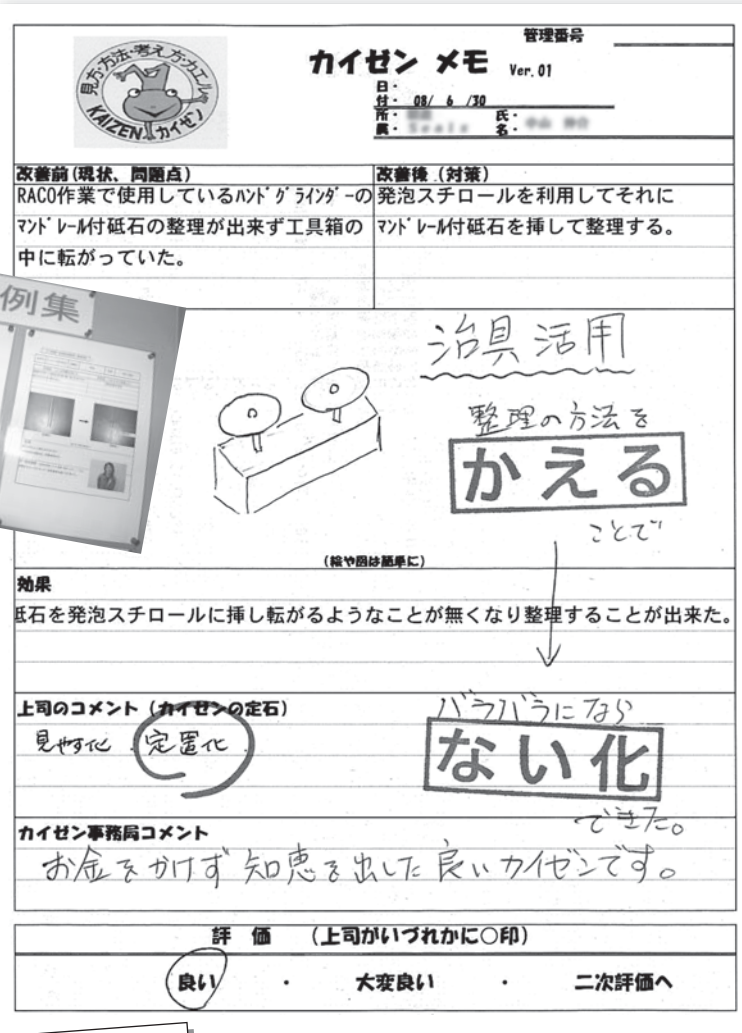 管理番号
見方・方法・考え方・カエル
KAIZEN カイゼン
カイゼン メモ Ver.01
日・付・ 08/ 6 /30
所・属・ 氏・名・
改善前(現状、問題点)
RACO作業で使用しているハンドグラインダーの
マンドレール付砥石の整理が出来ず工具箱の
中に転がっていた。
改善後(対策)
発泡スチロールを利用してそれに
マンドレール付砥石を挿して整理する。
例集
治具活用
整理の方法を
かえる
ことで
(絵や図は簡単に)
効果
砥石を発泡スチロールに挿し転がるようなことが無くなり整理することが出来た。
上司のコメント(カイゼンの定石)
見やす化 . 定置化
バラバラになら
ない化
できた。
カイゼン事務局コメント
お金をかけず知恵を出した良いカイゼンです。
評 価 (上司がいづれかに○印)
良い ・ 大変良い ・ 二次評価へ